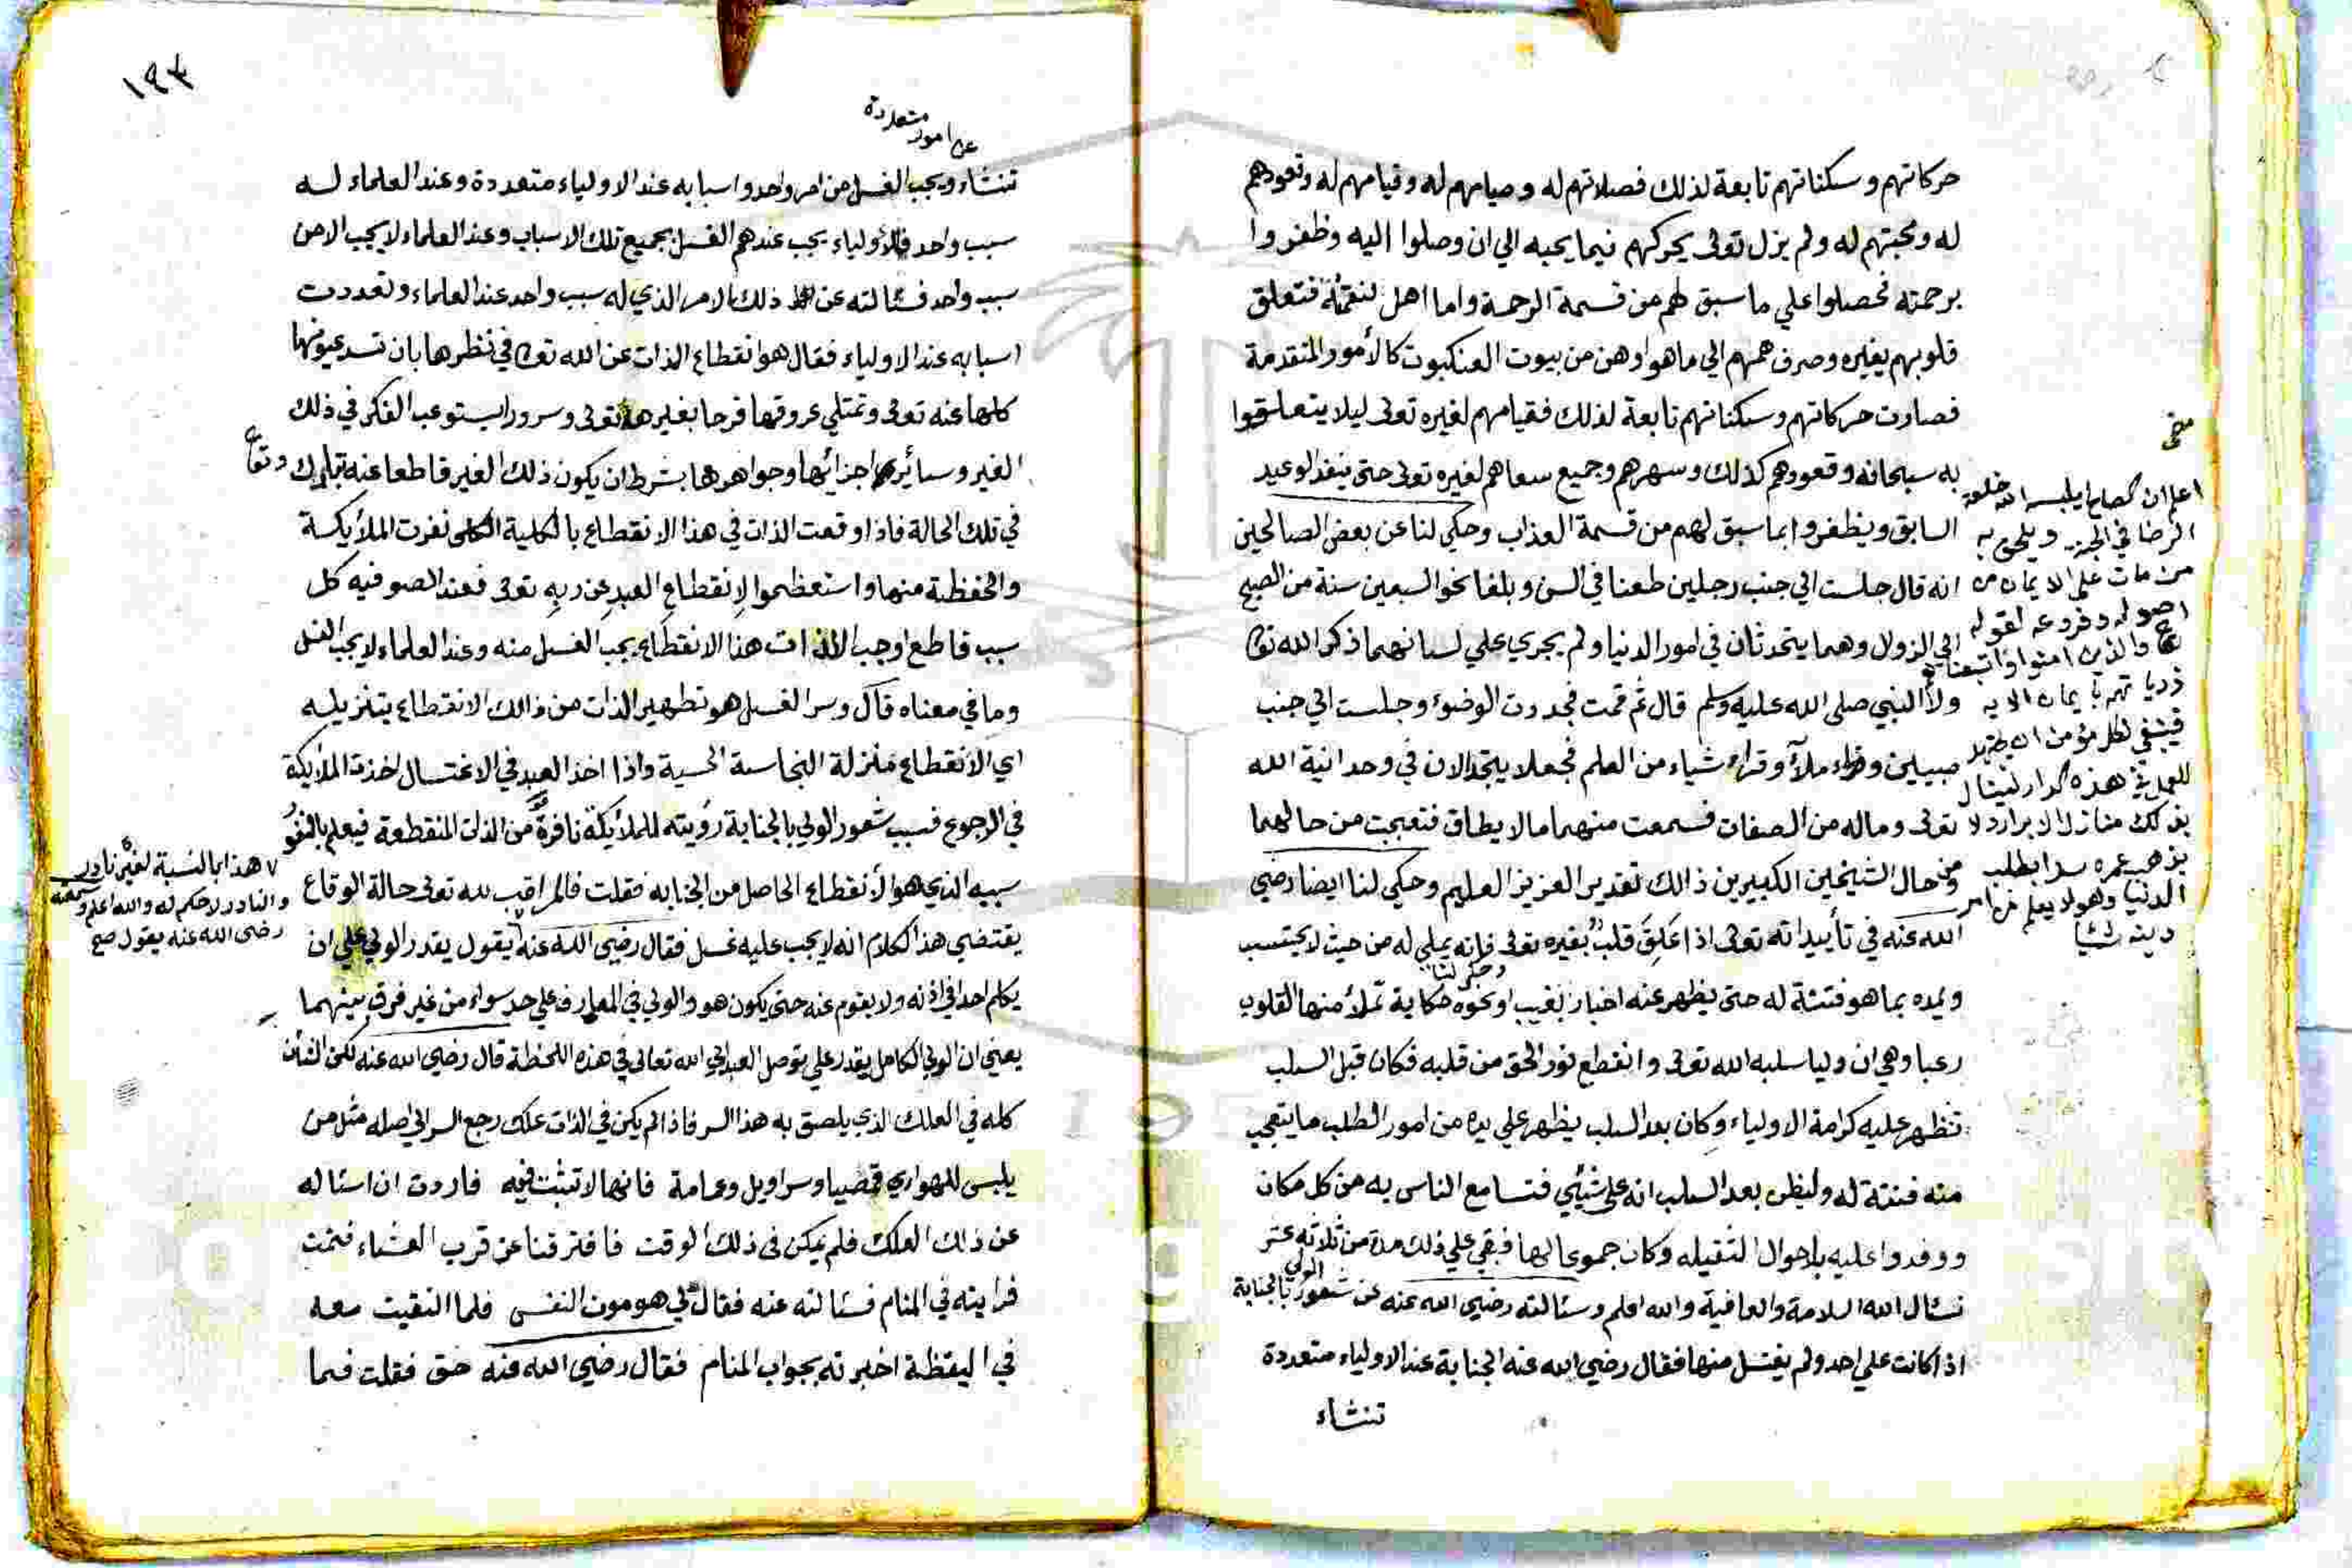 حركاتهم وسكناتهم تابعة لذلك فصلاتهم له وصيامهم له وقيامهم له وقعودهم
له ومحبتهم له ولم يزل تعالى يحركهم فيما يحبه الي ان وصلوا اليه وظفروا
برحمته فحصلوا علي ما سبق لهم من قسمة الرحمة واما اهل نقمته فتعلق
قلوبهم بغيره وصرف هممهم الي ما هو اوهن من بيوت العنكبوت كالأمور المتقدمة
فصارت حركاتهم وسكناتهم تابعة لذلك فقيامهم لغيره تعالى ليلا يتعلقوا
به سبحانه وقعودهم كذلك وسهرهم وجميع سعاهم لغيره تعالى حتى ينفذ الوعيد
السابق ويظفروا بما سبق لهم من قسمة العذاب وحكي لنا عن بعض الصالحين
انه قال جلست الي جنب رجلين طعنا في السن وبلغا نحو السبعين سنة من الصبح
الي الزوال وهما يتحدثان في امور الدنيا ولم يجري علي لسانهما ذكر الله تعالى
ولا النبي صلى الله عليه وسلم قال ثم قمت فجددت الوضوء وجلست الي جنب
صبيين وقراء شياء من العلم فجعلا يتجدالان في وحدانية الله
تعالى وماله من الصفات فسمعت منهما ما لا يطاق فتعجبت من حالهما
ومن حال الشيخين الكبيرين ذالك تقدير العزيز العليم وحكي لنا ايضا رضي
الله عنه في تأييداته تعالى اذا علق قلب بغيره تعالى فإنه يملي له من حيث لا يحتسب
ويمده بما هو فتنة له حتى يظهر عنه اخبار بغيب او نحوه وحكى لنا حكاية تملأ منها القلوب
رعبا وهي ان وليا سلبه الله تعالى وانقطع نور الحق من قلبه فكان قبل السلب
تظهر عليه كرامة الاولياء وكان بعد السلب يظهر علي يده من امور الطب ما يتعجب
منه فتنة له وليظن بعد السلب انه على شيئي فتسامع الناس به من كل مكان
ووفدوا عليه باحوال الثقيله وكان جموعا لها فبقي علي ذلك مدة من ثلاثه عشر
نسال الله السلامة والعافية والله اعلم وسئالته رضي الله عنه عن شعور الولي بالجنابة
اذا كانت علي احد ولم يغتسل منها فقال رضي الله عنه الجنابة عند الاولياء متعددة
تنشاء
اعلم ان الصالح يلبسه الله خلعة
الرضا في الجنة ويلحق به
من مات على الايمان من
اصوله وفروعه لقوله
تعا والذين امنوا واتبعناهم
ذرياتهم بايمان الايه
فينبغي لكل مؤمن ان يجتهد
للعمل في هذه الدار لينال
بذلك منازل الابرار ولا
يذهب عمره سدا بطلب
الدنيا وهو لا يعلم من امر
دينه شيا
١٩٣
عن امور متعددة
تنشاء ويجب الغسل من امر واحد واسبابه عند الاولياء متعددة وعند العلماء له
سبب واحد فالأولياء يجب عندهم الغسل بجميع تلك الاسباب وعند العلماء لا يجب الا من
سبب واحد فسئالته عن ذلك الامر الذي له سبب واحد عند العلماء وتعددت
اسبابه عند الاولياء فقال هو انقطاع الذات عن الله تعالى في نظرها بان تسد عيونها
كلها عنه تعالى وتمتلي عروقها فرحا بغيره تعالى وسرورا يستوعب الفكر في ذلك
الغير وسائر اجزائها وجواهرها بشرط ان يكون ذلك الغير قاطعا عنه تبارك وتعا
في تلك الحالة فاذا وقعت الذات في هذا الانقطاع بالكلية نفرت الملأيكة
والحفظة منها واستعظموا لإنقطاع العبد عن ربه تعالى فعند الصوفيه كل
سبب قاطع اوجب الذات هذا الانقطاع يجب الغسل منه وعند العلماء لا يجب الغسل
وما في معناه قال وسر الغسل هو تطهير الذات من ذالك الانقطاع بتنزيله
اي الانقطاع منزلة النجاسة الحسية واذا اخذ العبد في الاغتسال اخذت الملأيكة
في الرجوع فسبب شعور الولي بالجنابة رؤيته للملأيكة نافرة من الذات المنقطعة فيعلم بالنفور
سببه الذي هو الأنقطاع الحاصل من الجنابه فقلت فالمراقب لله تعالى حالة الوقاع
يقتضي هذا الكلام انه لا يجب عليه غسل فقال رضي الله عنه يقول يقدر الولي علي ان
يكلم احدا في اذنه ولا يقوم عنه حتى يكون هو والولي في المعارف علي حد سواء من غير فرق بينهما
يعني ان الولي الكامل يقدر علي يوصل العبد الي الله تعالى في هذه اللحظة قال رضي الله عنه لكن الشأن
كله في العلك الذي يلصق به هذا السر فاذا لم يكن في الذات علك رجع السر الي اصله مثل من
يلبس للهواري قميصا وسراويل وعمامة فانها لا تثبت فيه فاردت ان اسئاله
عن ذالك العلك فلم يمكن في ذلك الوقت فافترقنا عن قرب العشاء فنمت
فرايته في المنام فسئالته عنه فقال لي هو موت النفس فلما التقيت معه
في اليقظة اخبرته بجواب المنام فقال رضي الله عنه حق فقلت فما
٧ هذا بالنسبة لغير نادر
والنادر لا حكم له والله اعلم وسمعته
رضى الله عنه يقول صح